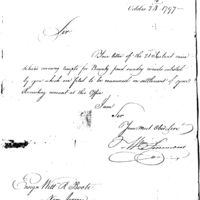 October 24 1797
Sir
Your letter of the 21st instant
inclosing vouchers receipts for Bounty paid sundry recruits enlisted
by you which are filed to be examined in settlement of your
Recruiting account at this Office
I am
Sir
Your most Obed Serv
Wm Simmons
Ensign Will R Boote
New Jersey